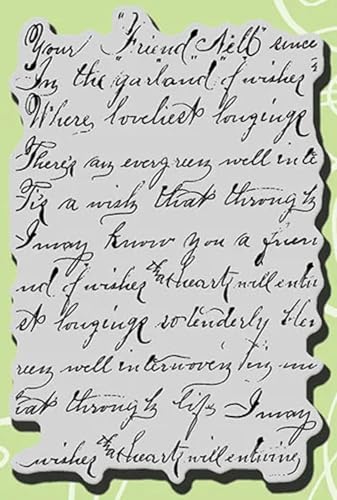 Your "Friend "Nell" since
In the "garland" of wishes
Where loveliest longings
There's an evergreen well inte
Tis a wish that through
I may know you a frien
nd of wishes that hearts will entwi
st longings so tenderly ble
reen well interwoven in
hat through life I may
wishes that hearts will entwine